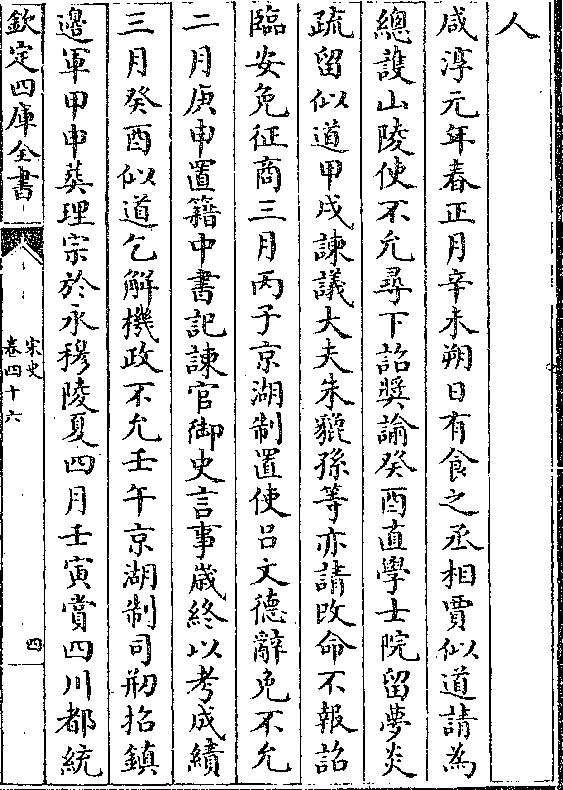 人
咸淳元年春正月辛未朔日有食之丞相賈似道請為
總䕶山陵使不允尋下詔奬諭癸酉直學士院留夢炎
疏留似道甲戌諫議大夫朱貔孫等亦請改命不報詔
臨安免征商三月丙子京湖制置使吕文德辭免不允
二月庚申置籍中書記諫官御史言事歳終以考成績
三月癸酉似道乞解機政不允壬午京湖制司剏招鎮
邉軍甲申葬理宗於永穆陵夏四月壬寅賞四川都統
欽定四庫全書
宋史
卷四十六
四